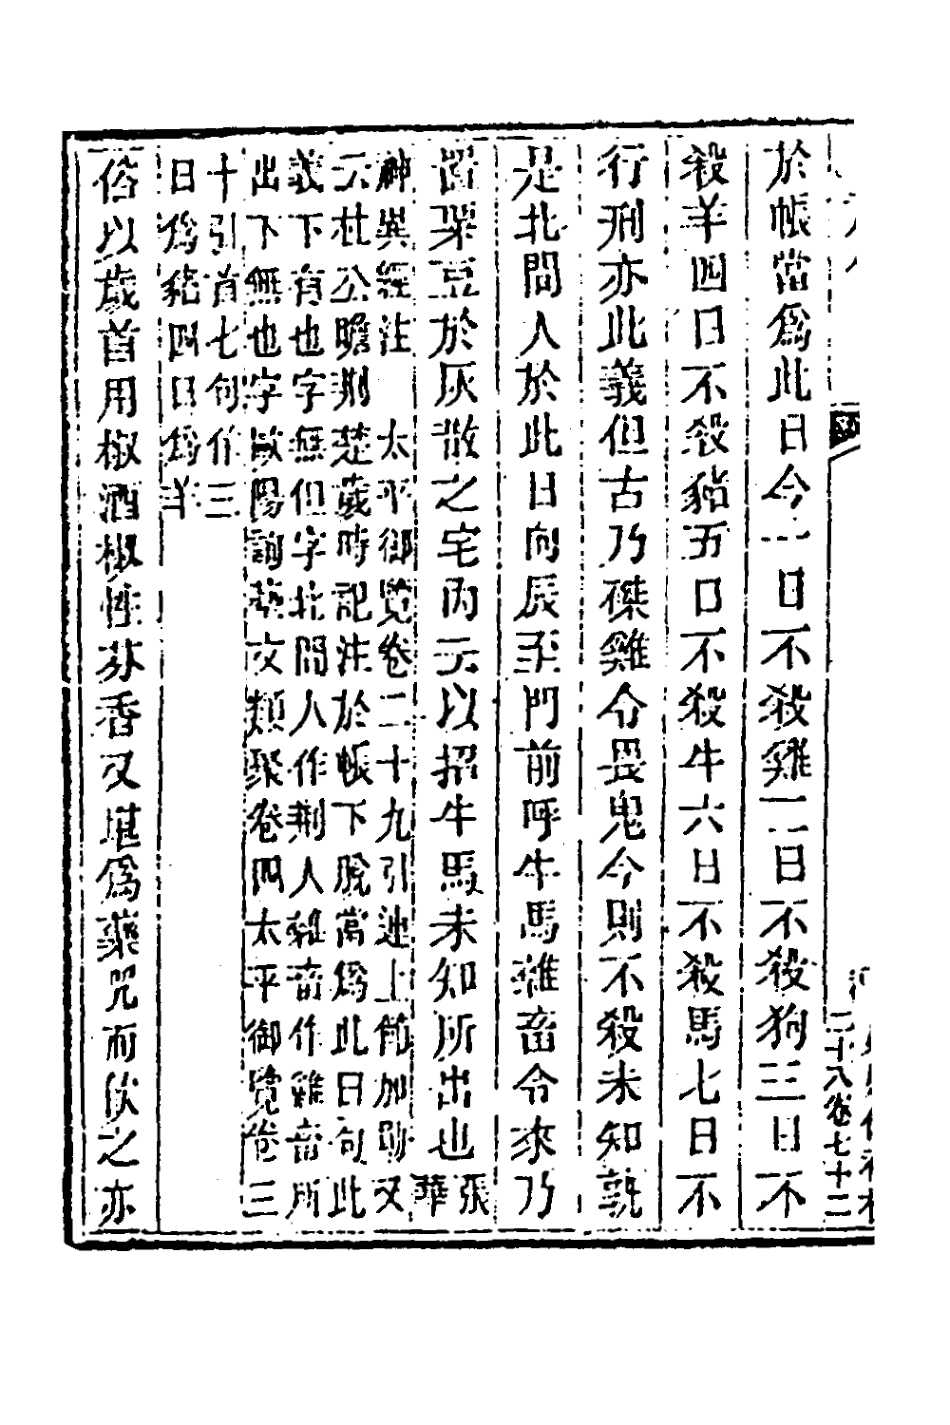 於帳當爲此日今一日不殺雞二日不殺狗三日不
殺羊四日不殺豬五日不殺牛六日不殺馬七日不
行刑亦此義但古乃磔雞令畏鬼今則不殺未知孰
是北間人於此日向辰至門前呼牛馬雜畜令來乃
置粟豆於灰散之宅內云以招牛馬未知所出也張華
神異經注 太平御覽卷二十九引逆上節加助又
云杜公瞻荆楚歲時記注於帳下脫當爲此日句此
義下有也字無但字北間人作荆人雜畜作雞畜所
出下無也字歐陽詢藝文類聚卷四太平御覽卷三
十引首七句作三
日爲豬四日爲羊
俗以歲首用椒酒椒性芬香又堪爲藥咒而飲之亦
二十八卷七十二